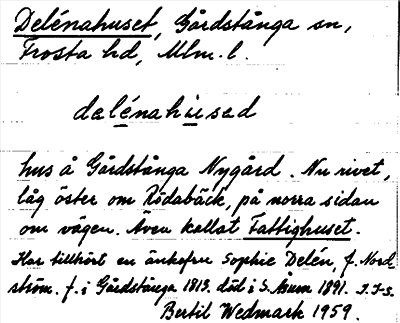 Delénahuset, Gårdstånga sn,
Frosta hd, Mlm. l.
delénahused
hus å Gårdstånga Nygård. Nu rivet,
låg öster om Rödabäck, på norra sidan
om vägen. Även kallat Fattighuset.
Har tillhört en änkefru Sophie Delén, f. Nord
ström. f. i Gårdstånga 1813. död i S. Åsum 1891. I.I-s.
Bertil Wedmark 1959.